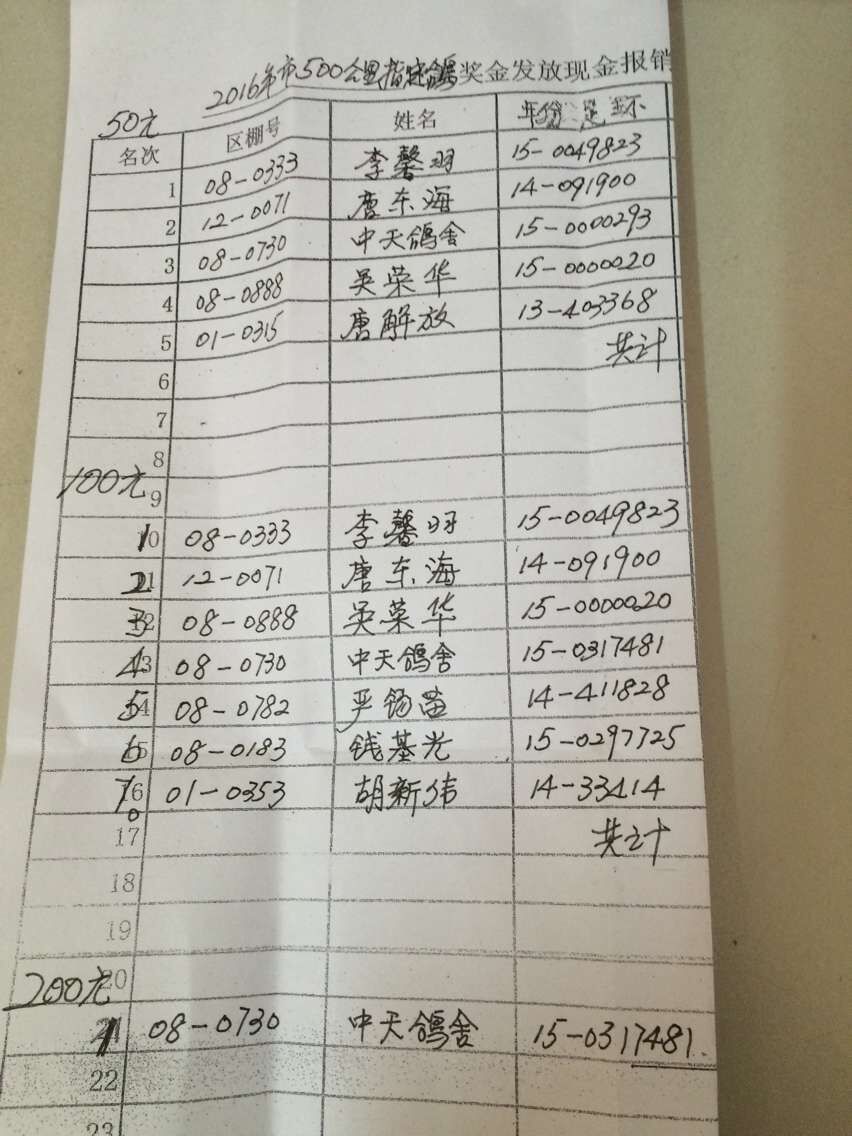 2016年市500公里指定鸽奖金发放现金报销
50元
名次 区棚号 姓名 年份 足环
1 08-0333 李馨羽 15-0049823
2 12-0071 唐东海 14-091900
3 08-0730 中天鸽舍 15-0000293
4 08-0888 吴荣华 15-0000020
5 01-0315 唐解放 13-403368
6 共计
7
8
100元
9
10 08-0333 李馨羽 15-0049823
2 12-0071 唐东海 14-091900
3 08-0888 吴荣华 15-0000020
4 08-0730 中天鸽舍 15-0317481
5 08-0782 严锡苗 14-411828
6 08-0183 钱基光 15-0297725
7 01-0353 胡新伟 14-33414
17 共计
18
19
20
200元
1 08-0730 中天鸽舍 15-0317481
22
23